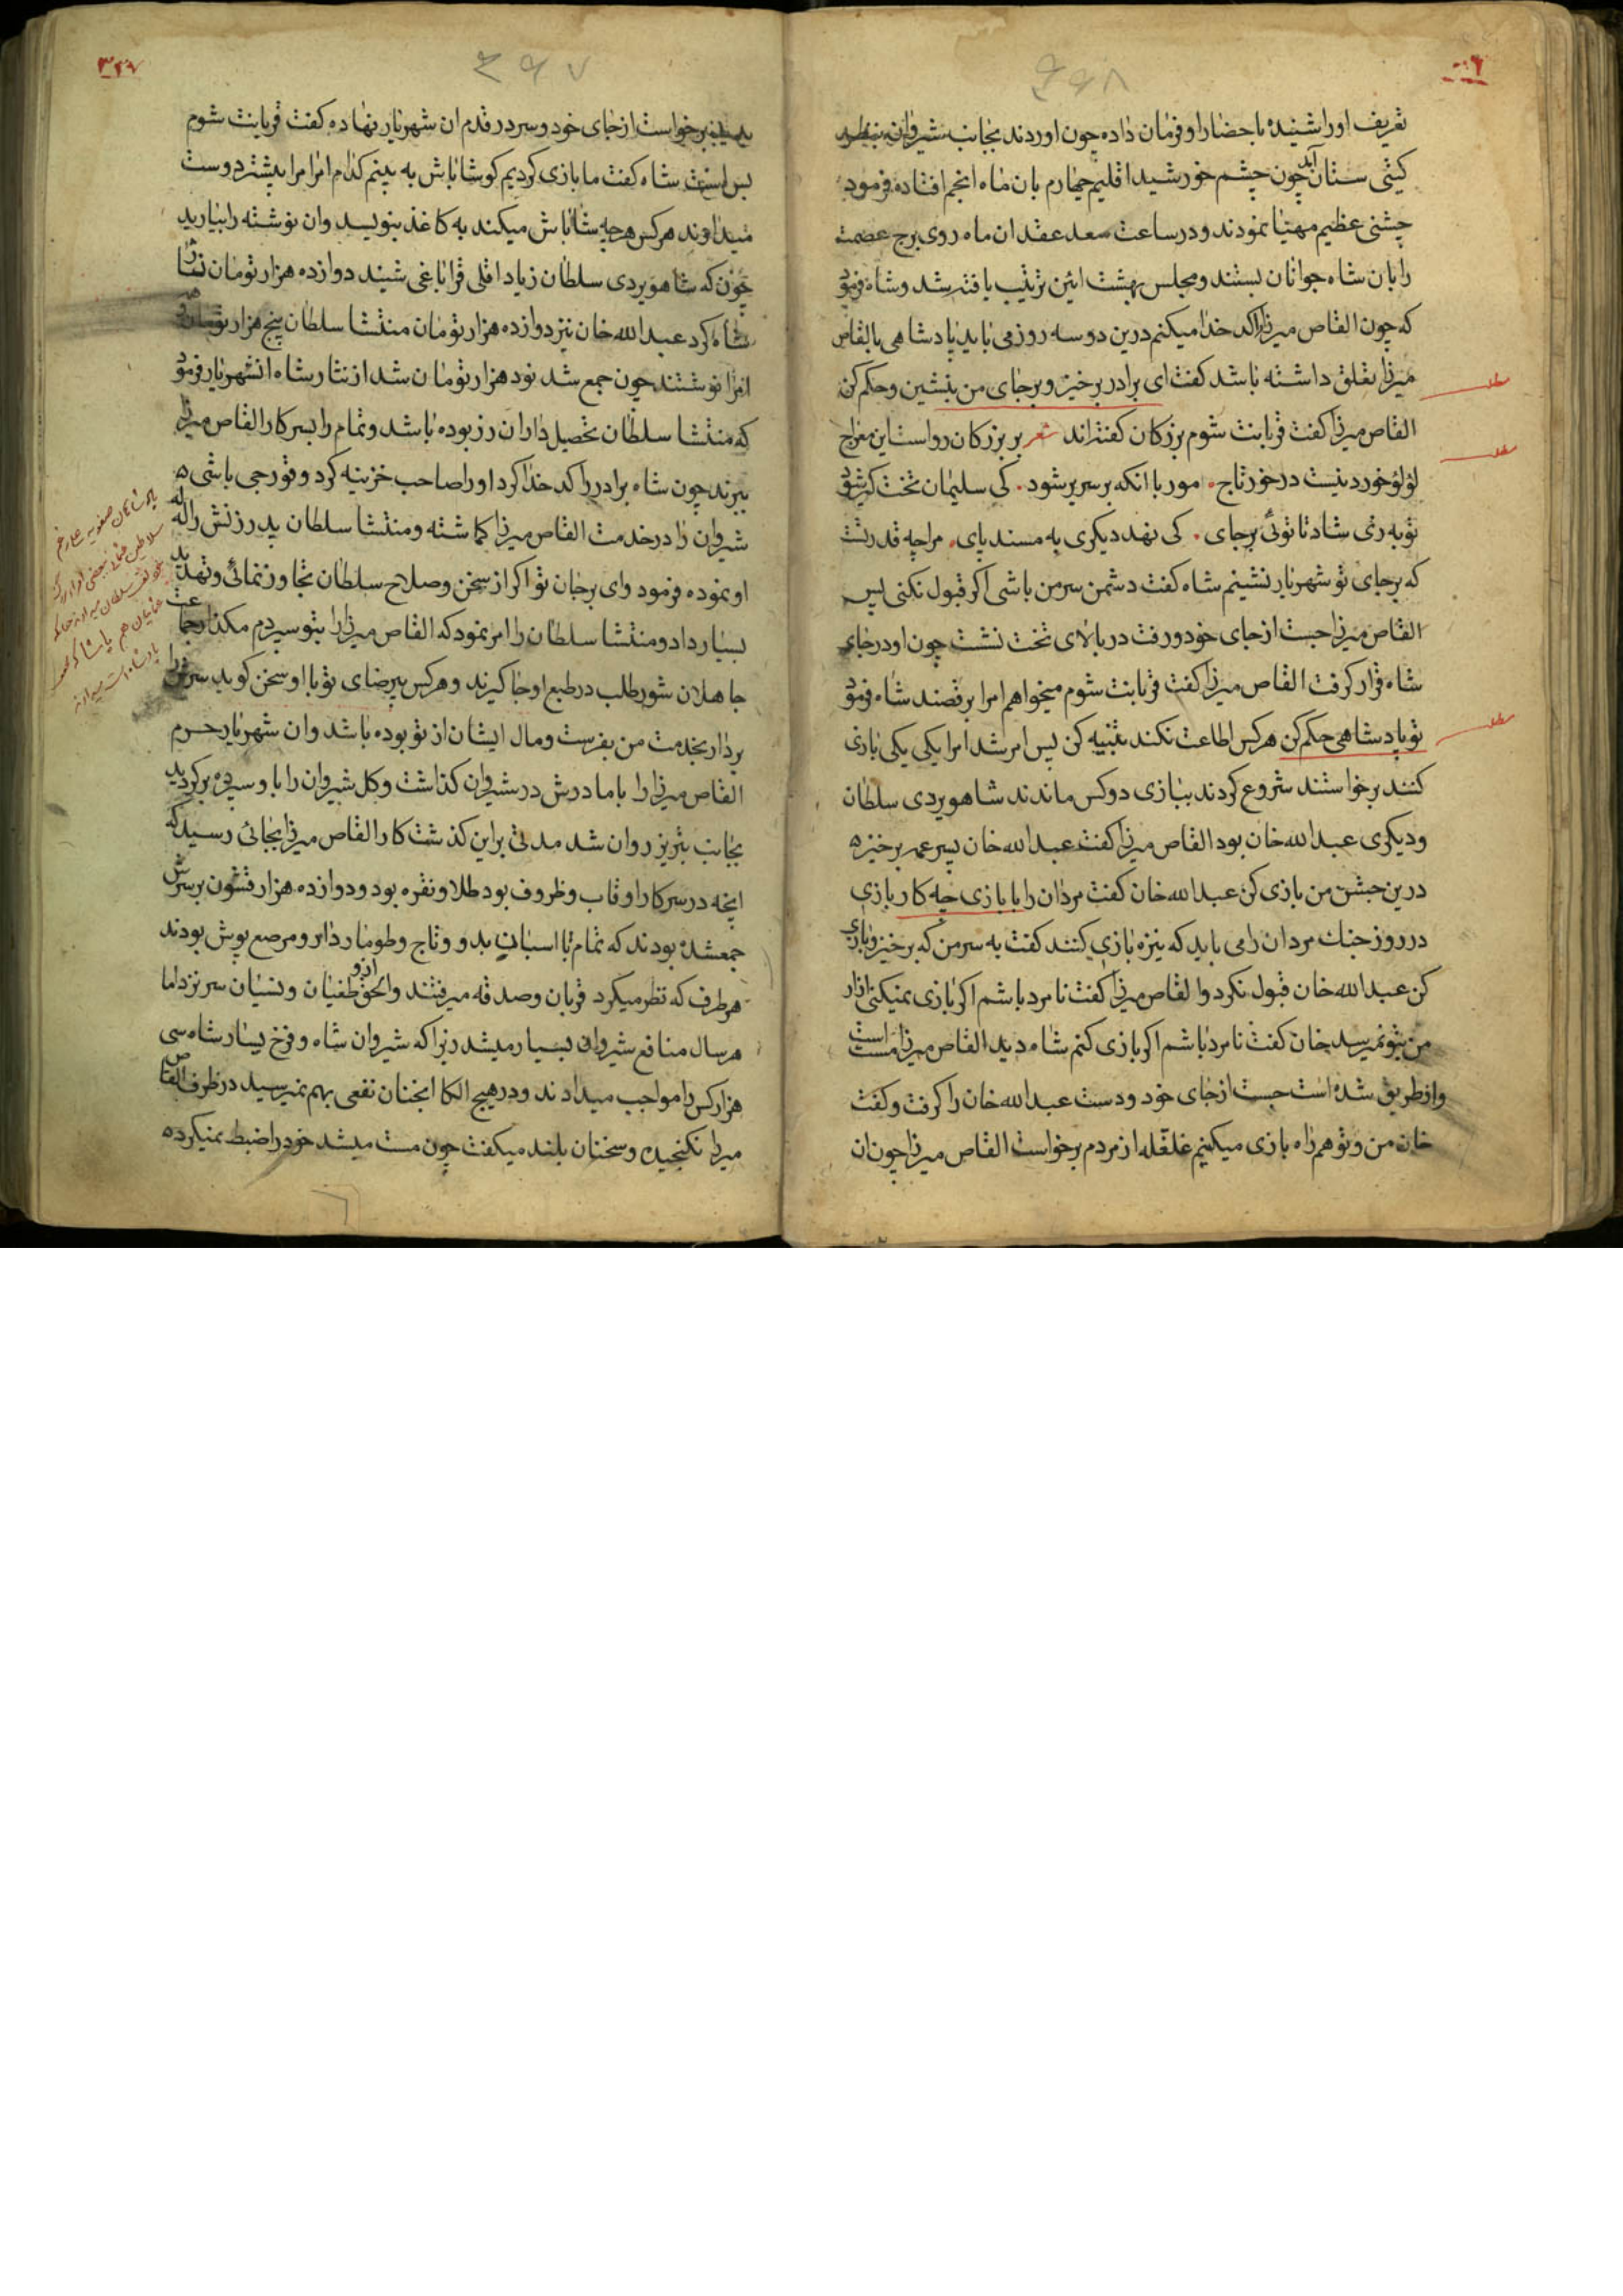 تعریف اورا شنیده باحضار او فرمان داده چون اوردند بجانب شیروان
کیتی ستان آید چون چشم خورشید اقلیم چهارم بان ماه انجم افتاده فرمود
جشنی عظیم مهیا نمودند و در ساعت سعد عقد ان ماه روی برج عصمت
را بان شاه جوانان بستند و مجلس بهشت ائین ترتیب یافته شد و شاه فرمود
که چون القاص میرزا را کد خدا میکنم درین دو سه روز می باید پادشاهی بالقاص
میرزا تعلق داشته باشد کفت ای برادر برخیز و برجای من بنشین و حکم کن
القاص میرزا کفت قربانت شوم بزرکان کفته اند شعر بر بزرکان رواست این معراج
لؤلؤ خورد نیست درخور تاج مور با انکه بر سریر شود کی سلیمان تخت کیر شود
تو به ری شاد تا توئی برجای کی نهد دیکری به مسند پای مراچه قدرتست
که برجای تو شهریار نشینم شاه کفت دشمن سر من باشی اکر قبول نکنی پس
القاص میرزا جست از جای خود و رفت در بالای تخت نشست چون او در جای
شاه قرار کرفت القاص میرزا کفت قربانت شوم میخواهم امرا برقصند شاه فرمود
تو پادشاهی حکم کن هرکس اطاعت نکند تنبیه کن پس امر شد امرا یکی یکی بازی
کنند برخواستند شروع کردند ببازی دوکس ماندند شاهویردی سلطان
ودیکری عبدالله خان بود القاص میرزا کفت عبدالله خان پسر عمه برخیزه
درین جشن من بازی کن عبدالله خان کفت مردان را با بازی چه کار بازی
در روز جنك مردان را می باید که نیزه بازی کنند کفت به سر من که برخیز و بازی
کن عبدالله خان قبول نکرد و القاص میرزا کفت نامرد باشم اکر بازی نمیکنی ازار
من بتو نمیرسد خان کفت نامرد باشم اکر بازی کنم شاه دید القاص میرزا مست است
و از طریق شده است جست از جای خود و دست عبدالله خان را کرفت و کفت
خان من و تو همراه بازی میکنیم غلغله از مردم برخواست القاص میرزا چون ان
۳۲۷
برخواست از جای خود و سر در قدم ان شهریار نهاده کفت قربانت شوم
بس است شاه کفت ما بازی کردیم کو شاباش به بینم کدام امرا مرا بیشتر دوست
میدارند هرکس هرچه شاباش میکند به کاغذ بنویسید وان نوشته را بیارید
چون که شاهویردی سلطان زیاد اقلی قراباغی شنید دوازده هزار تومان نثار
شاه کرد عبدالله خان نیز دوازده هزار تومان منتشا سلطان پنج هزار تومان
امرا نوشتند چون جمع شد نود هزار تومان شد از نثار شاه انشهریار فرمود
که منتشا سلطان تحصیل داران زر بوده باشد و تمام را بسر کار القاص میرزا
ببرند چون شاه برادر را کد خدا کرد او را صاحب خزینه کرد و قورجی باشی
شیروان را در خدمت القاص میرزا کماشته و منتشا سلطان پدر زنش را لله
او نموده فرمود وای برجان تو اکر از سخن و صلاح سلطان تجاوز نمائی و تهدید
بسیار داد و منتشا سلطان را امر نمود که القاص میرزا را بتو سپردم مکذار جماعت
جاهلان شور طلب در طبع او جا کیرند و هرکس بیرضای تو با او سخن کوید سر او را
بردار بخدمت من بفرست و مال ایشان از تو بوده باشد وان شهریار حرم
القاص میرزا را با مادرش در شیروان کذاشت و کل شیروان را با و سپرده برکردید
بجانب تبریز روان شد مدتی براین کذشت کار القاص میرزا بجائی رسید که
انچه در سرکار او قاب و ظروف بود طلا و نقره بود و دوازده هزار قشون بر سرش
جمعشده بودند که تمام با اسبان بدو و تاج و طومار دار و مرصع پوش بودند
هر طرف که نظر میکرد قربان و صدقه میرفتند والحق ازو طغیان و نسیان سر نزد اما
هر سال منافع شیروان بسیار میشد زیرا که شیروان شاه و فرخ یسار شاه سی
هزار کس را مواجب میدادند و در هیچ الکا انچنان نفعی بهم نمیرسید در ظرف القاص
میرزا نکنجیده و سخنان بلند میکفت چون مست میشد خود را ضبط نمیکرده